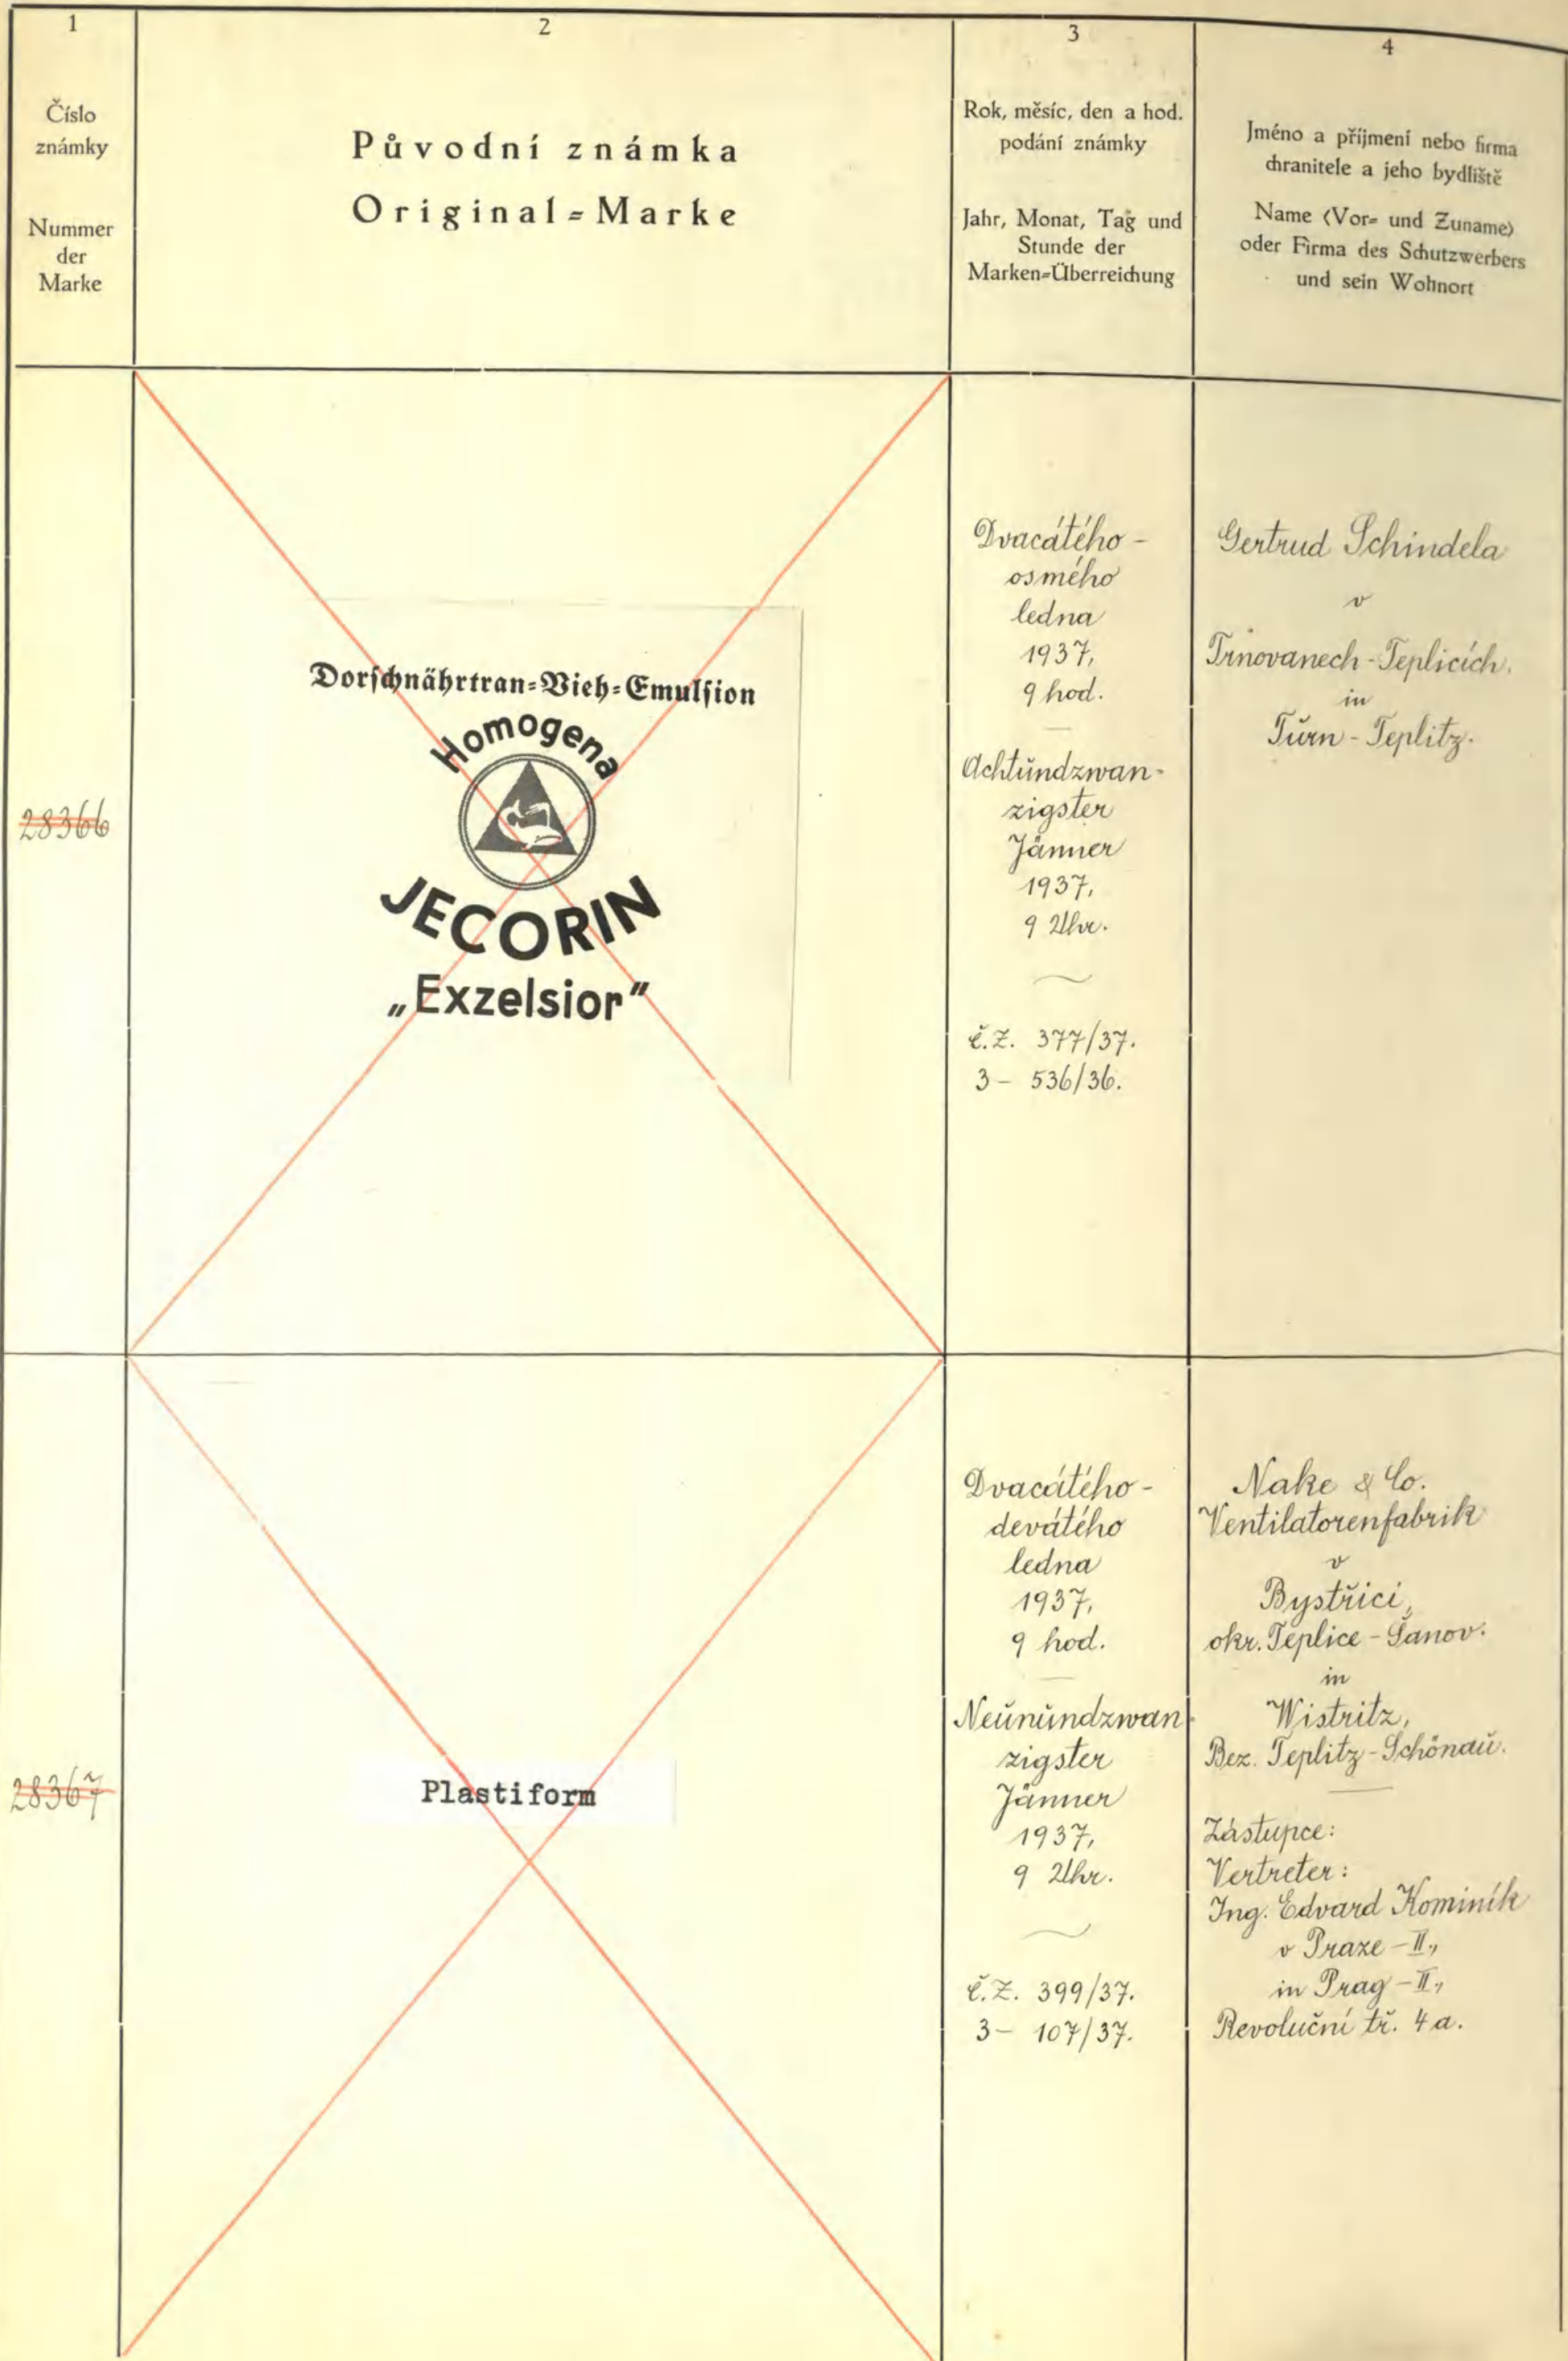 1
Číslo
známky
Nummer
der
Marke
2
Původní známka
Original=Marke
3
Rok, měsíc, den a hod.
podání známky
Jahr, Monat, Tag und
Stunde der
Marken=Überreichung
4
Jméno a příjmení nebo firma
chranitele a jeho bydliště
Name (Vor= und Zuname)
oder Firma des Schutzwerbers
und sein Wohnort
28366
Dorschnährtran=Vieh=Emulsion
Homogena
JECORIN
„Exzelsior"
Dvacátého-
osmého
ledna
1937,
9 hod.
Achtŭndzwan-
zigster
Jänner
1937,
9 Uhr.
č.ž. 377/37.
3- 536/36.
Gertrud Schindela
v
Trnovanech-Teplicích.
in
Tŭrn-Teplitz.
28367
Plastiform
Dvacátého-
devátého
ledna
1937,
9 hod.
Neŭnŭndzwan-
zigster
Jänner
1937,
9 Uhr.
č.ž. 399/37.
3- 107/37.
Nake & Co.
Ventilatorenfabrik
v
Bystřici,
okr. Teplice-Šanov.
in
Wistritz,
Bez. Teplitz-Schönaŭ.
Zástupce:
Vertreter:
Ing. Edvard Kominík
v Praze-II.,
in Prag-II.,
Revoluční tř. 4a.